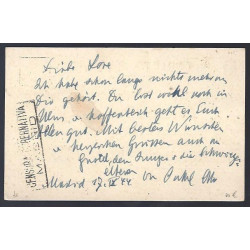 Liebe Lore
Ich habe schon lange nichts mehr von
Dir gehört. Du bist wohl noch in
Ulm u. hoffentlich geht es Euch
allen gut. Mit besten Wünschen
u. herzlichen Grüssen auch an
Gustel, den Jungen u. die Schwieger-
eltern von
Madrid 17. IX 44
CENSURA GUBERNATIVA
MADRID